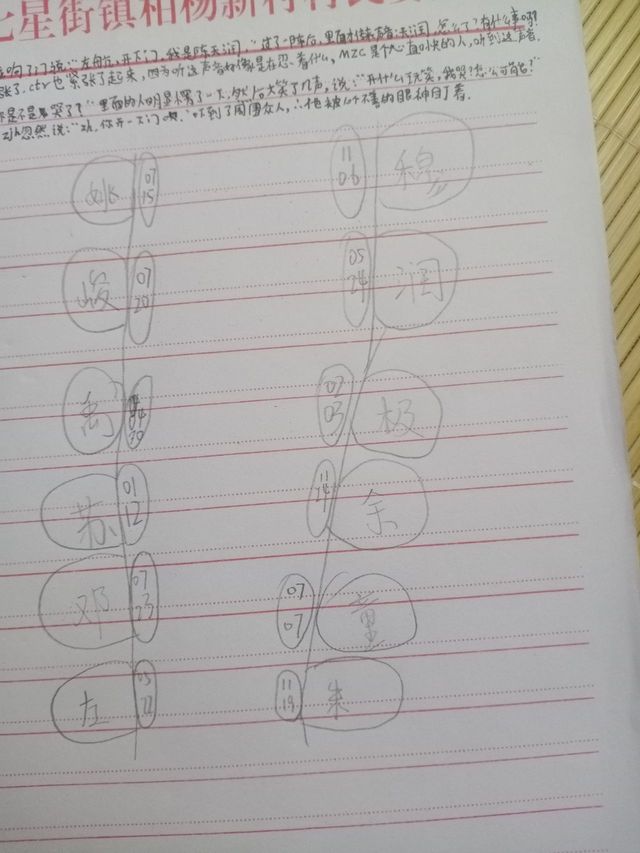 七星街镇柏杨新村村民委
响了门说:“左航,开下门,我是陈天润,”过了一阵后,里面才传来声音:“天润,怎么了?有什么事吗?
张了.ctr也紧张了起来,因为听这声音好像是在忍着什么,MZC是个心直口快的人,听到这声音,
是不是哭了?”里面的人明显愣了一下,然后大笑了几声,说:“开什么玩笑,我哭?怎么可能?”
zjh忽然说:“zh,你开一下门呗.”吓到了周围众人,∴他被
姚 07 15 11 06 穆
峻 07 20 05 24 润
禹 07 03 极
苏 01 12 11 14 余
邓 07 23 07 07 童
左 05 22 11 19 朱